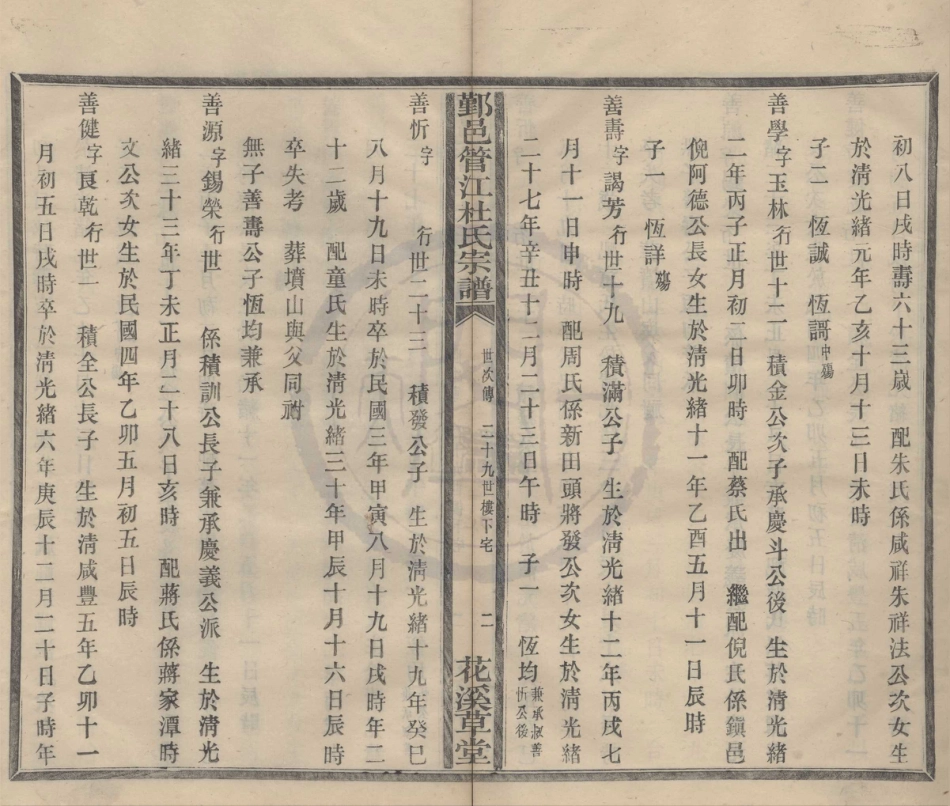 初八日戌時壽六十三歲 配朱氏係咸祥朱祥法公次女生
於清光緒元年乙亥十月十三日未時
子二 恆誠 恆謌中殤
善學字玉林行世十二 積金公次子承慶斗公後 生於清光緒
二年丙子正月初二日卯時 配蔡氏出 繼配倪氏係鎭邑
倪阿德公長女生於清光緒十一年乙酉五月十一日辰時
子一 恆詳殤
善壽字謁芳行世十九 積滿公子 生於清光緒十二年丙戌七
月十一日申時 配周氏係新田頭將發公次女生於清光緒
二十七年辛丑十二月二十三日午時 子一 恆均兼承淑善忻公後
鄞邑管江杜氏宗譜 世次傳 三十九世樓下宅 二 花溪草堂
善忻字 行世二十三 積發公子 生於清光緒十九年癸巳
八月十九日未時卒於民國三年甲寅八月十九日戌時年二
十二歲 配童氏生於清光緒三十年甲辰十月十六日辰時
卒失考 葬墳山與父同祔
無子善壽公子恆均兼承
善源字錫榮行世 係積訓公長子兼承慶義公派 生於清光
緒三十三年丁未正月二十八日亥時 配蔣氏係蔣家潭時
文公次女生於民國四年乙卯五月初五日辰時
善健字良乾行世一 積全公長子 生於清咸豐五年乙卯十一
月初五日戌時卒於清光緒六年庚辰十二月二十日子時年